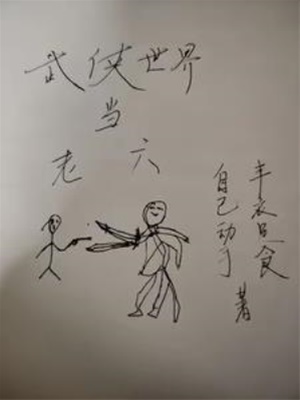 武侠世界
当
老六
自己动手
丰衣足食
著